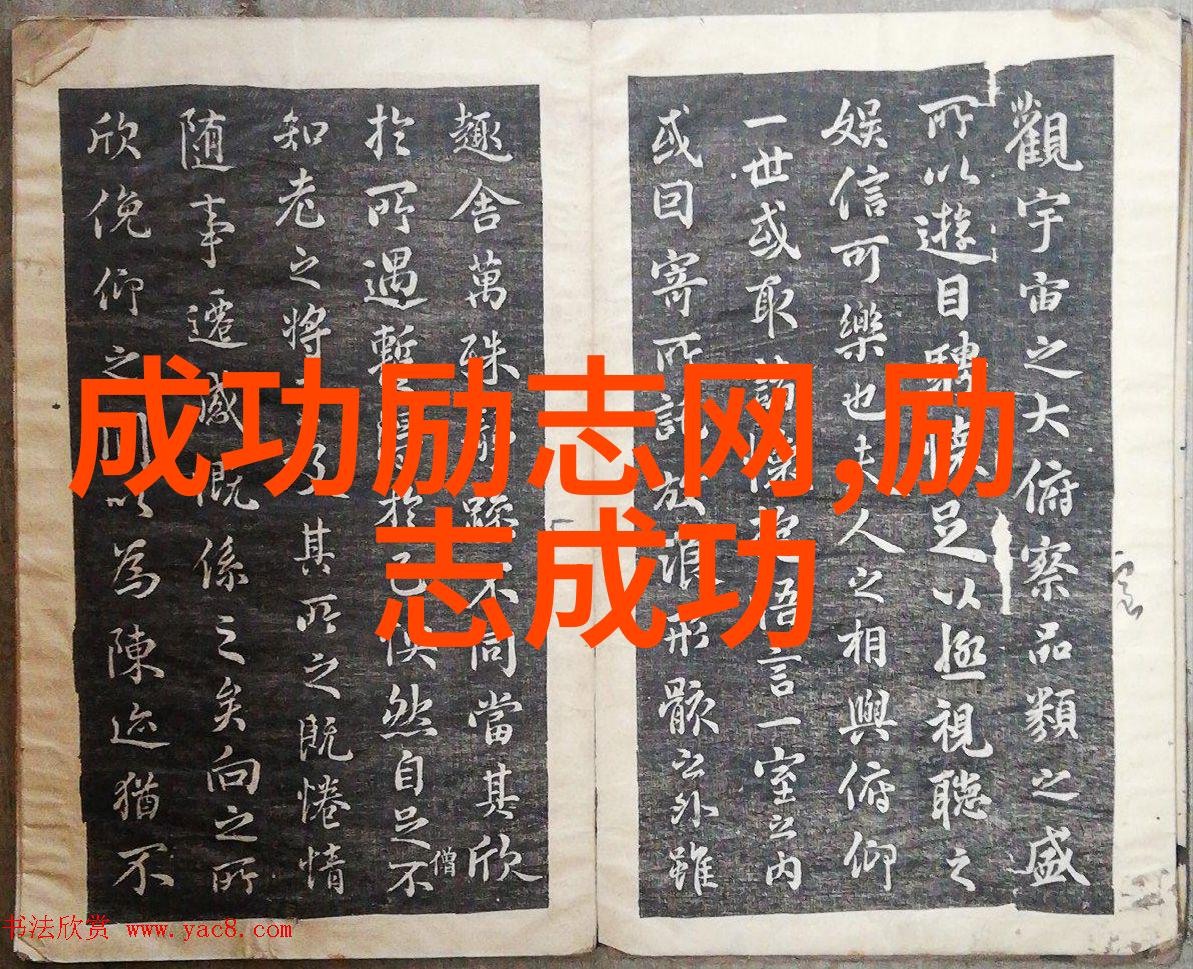 觀宇宙之大俯察品類之盛
所以遊目騁懷足以極視聽之
娛信可樂也夫人之相與俯仰
一世或取諸懷抱悟言一室之內
或因寄所託放浪形骸之外雖
趣舍萬殊靜躁不同當其欣
於所遇暫得於己快然自足不
僧
知老之將至及其所之既惓情
随事遷感慨係之矣向之所
欣俛仰之間以為陳迹猶不
成功励志网,励
志成功
书法欣赏 www.yac8.com